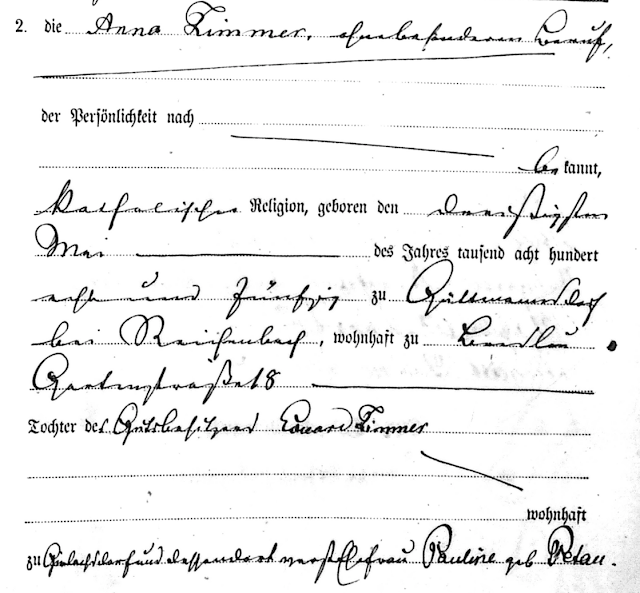 2. die Anna Zimmer, ohne besonderen Beruf,
der Persönlichkeit nach
bekannt,
katholischer Religion, geboren den dreißigsten
Mai des Jahres tausend acht hundert
acht und fünfzig zu Güttmannsdorf
bei Reichenbach, wohnhaft zu Breslau
Gartenstraße 18
Tochter des Gutsbesitzers Eduard Zimmer
wohnhaft
zu und dessen dort verst. Ehefrau Pauline geb